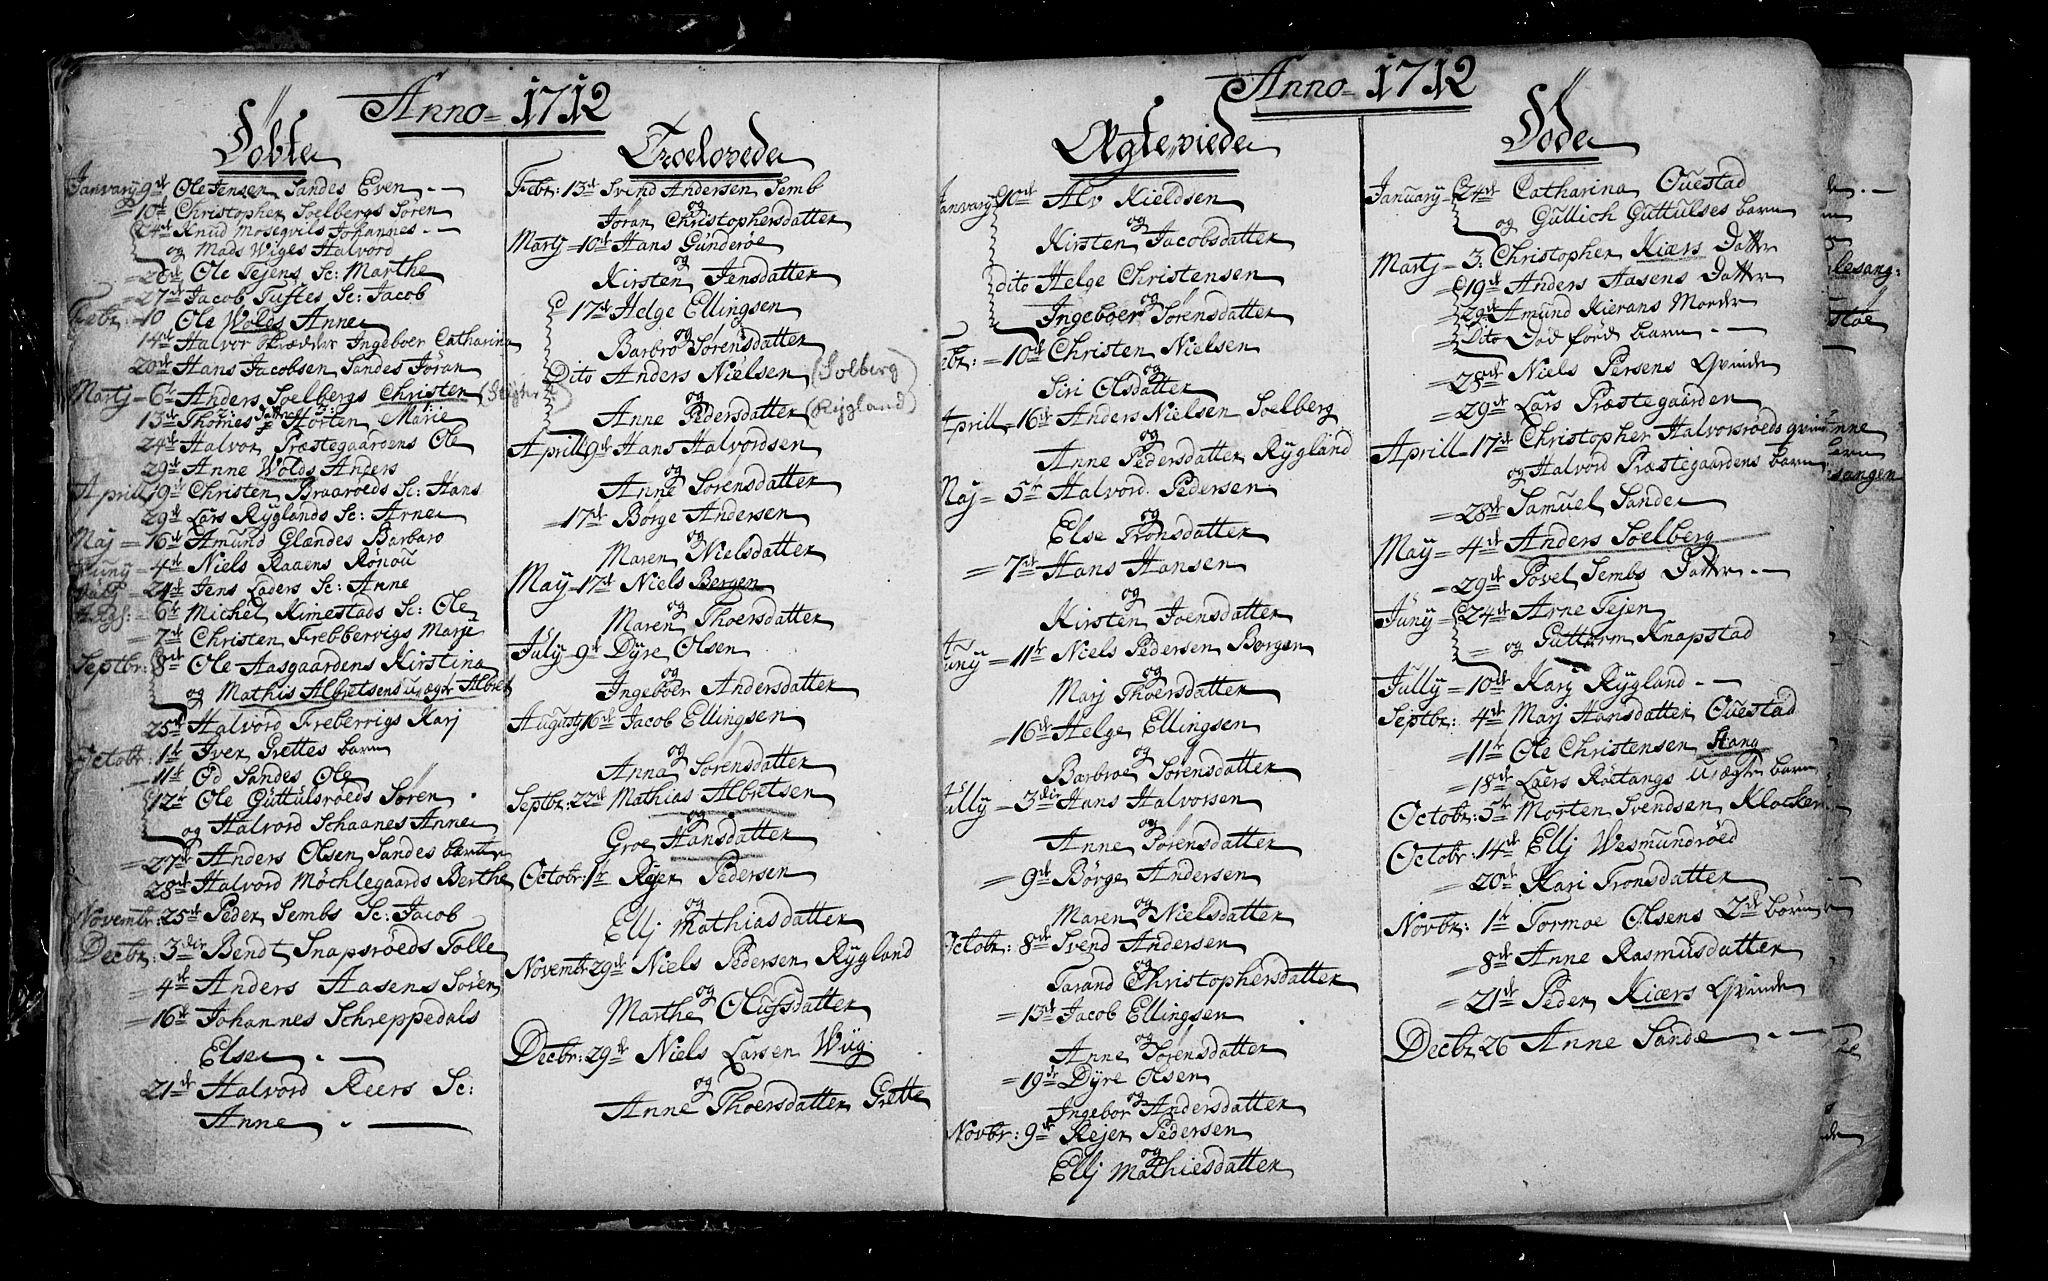 Anno 1712
Döbte
Janvary 9de Ole Jensen Sandes Even
10de Christopher Soelbergs Sören
24de Knud Mosegvils Johannes
og Mads Wiges Halvord
26de Ole Tejens Sc: Marthe
27de Jacob Tuftes Sc: Jacob
Febr: 10 Ole Wolds Anne
14de Halvor Skræder Ingeboer Catharina
20de Hans Jacobsen Sandes Jöran
Martj 6te Anders Soelbergs Christen
13de Thomes Horten Marie
24de Halvor Præstegaardens Ole
29de Anne Wolds Anfers
Aprill 19de Christen Braaröeds Sc: Hans
29de Lars Ryglands Sc: Arne
Maj = 16de Amund Glændes Barbaro
Juny = 4de Niels Raaens Rönou
24de Jens Laders Sc: Anne
6te Michel Kimestads Sc: Ole
7de Christen Frebberrigs Marje
Septbr: 8de Ole Aasgaardens Kirstina
og Mathis Albretsens uægte Albret
25de Halvord Freberrigs Karj
Octobr: 1te Iver Grettes barn
11te Od Sandes Ole
12te Ole Guttulsröeds Sören
og Halvord Schaanes Anne
27de Anders Olsen Sandes barn
28de Halvord Möchlegaards Berthe
Novembr: 25de Peder Sembs Sc: Jacob
Decbr: 3die Bendt Snapsröeds Tolle
4de Anders Aasens Sören
16de Johannes Schreppedals
Else
21de Halvord Reers Sc:
Anne
Troelovede
Febr: 13de Svend Andersen Semb
og
Joran Christophersdatter
Martj 10de Hans Gunderöe
og
Kirsten Jensdatter
17de Helge Ellingsen
og
Barbro Sörensdatter
Dito Anders Nielsen (Solberg)
og
Anne Pedersdatter (Rygland)
Aprill 9de Hans Halvordsen
og
Anne Sörensdatter
17de Börge Andersen
og
Maren Nielsdatter
May 17de Niels Bergen
og
Maren Thoersdatter
July 9de Dyre Olsen
og
Ingeboer Andersdatter
Augusty 16de Jacob Ellingsen
og
Anna Sörensdatter
Septbr: 22de Mathias Albretsen
og
Groe Hansdatter
Octobr: 1te Rejer Pedersen
og
Ellj Mathiasdatter
Novembr 29de Niels Pedersen Rygland
og
Marthe Olufsdatter
Decbr: 29de Niels Larsen Wüg
og
Anne Thoersdatter Grette
Anno 1712
Ægteviede
Janvary 10de Alv Kieldsen
og
Kirsten Jacobsdatter
dito Helge Christensen
og
Ingeboer Sörensdatter
Febr: = 10de Christen Nielsen
og
Siri Olsdatter
Aprill 16de Anders Nielsen Soelberg
og
Anne Pedersdatter Rygland
Maj = 5te Halvord Pedersen
og
Else Tronsdatter
7de Hans Hansen
og
Kirsten Joensdatter
Juny = 11te Niels Pedersen Borgen
og
Marj Thoersdatter
16de Helge Ellingsen
og
Barbroe Sörensdatter
Jully 3die Hans Halvorsen
og
Anne Sörensdatter
9de Börge Andersen
og
Maren Nielsdatter
Octobr: 8de Svend Andersen
og
Tarand Christophersdatter
13de Jacob Ellingsen
og
Anne Sörensdatter
19de Dyre Olsen
og
Ingebor Andersdatter
Novbr: 9de Rejer Pedersen
og
Ellj Mathiesdatter
Döde
January 24de Catharina Ouestad
og Gullich Guttulses barn
Martj = 3. Christopher Kiærs Datter
19de Anders Aasens Datter
29de Amund Kierans Moeder
Dito Död föd barn
28de Niels Persens Qvinde
29de Lars Præstegaarden
Aprill = 17de Christopher Halvorsröeds qvinde
og Halvord Præstegaardens barn
28de Samuel Sande
May = 4de Anders Soelberg
29de Povel Sembs Datter
Juny = 24de Arne Tejen
og Gutterm Knapstad
Jully = 10de Karj Rygland
Septbr: 4de Marj Hansdatter Ouestad
11te Ole Christensen Stang
18de Laers Röetangs Uægte barn
Octobr: 5te Morten Svendsen Klocker
Octobr: 14de Ellj Wesmundröed
20de Kari Tronsdatter
Novbr: 1te Tormoe Olsens 2de börn
8de Anne Rasmusdatter
21de Peder Kiærs Qvinde
Decbr 26 Anne Sande